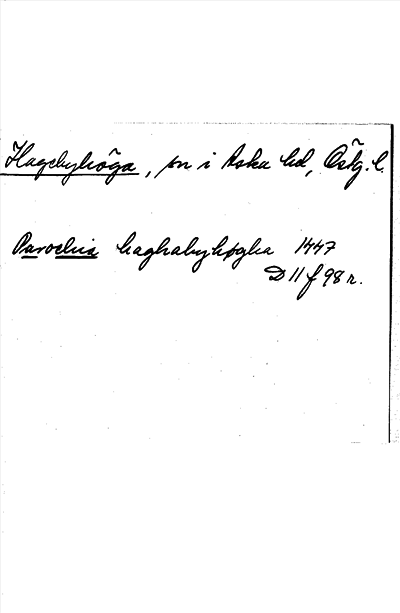 Hagebyhöga, sn i Aska hd, Östg. l.
Parochia haghabyhøgha 1447
D 11 f 98 r.